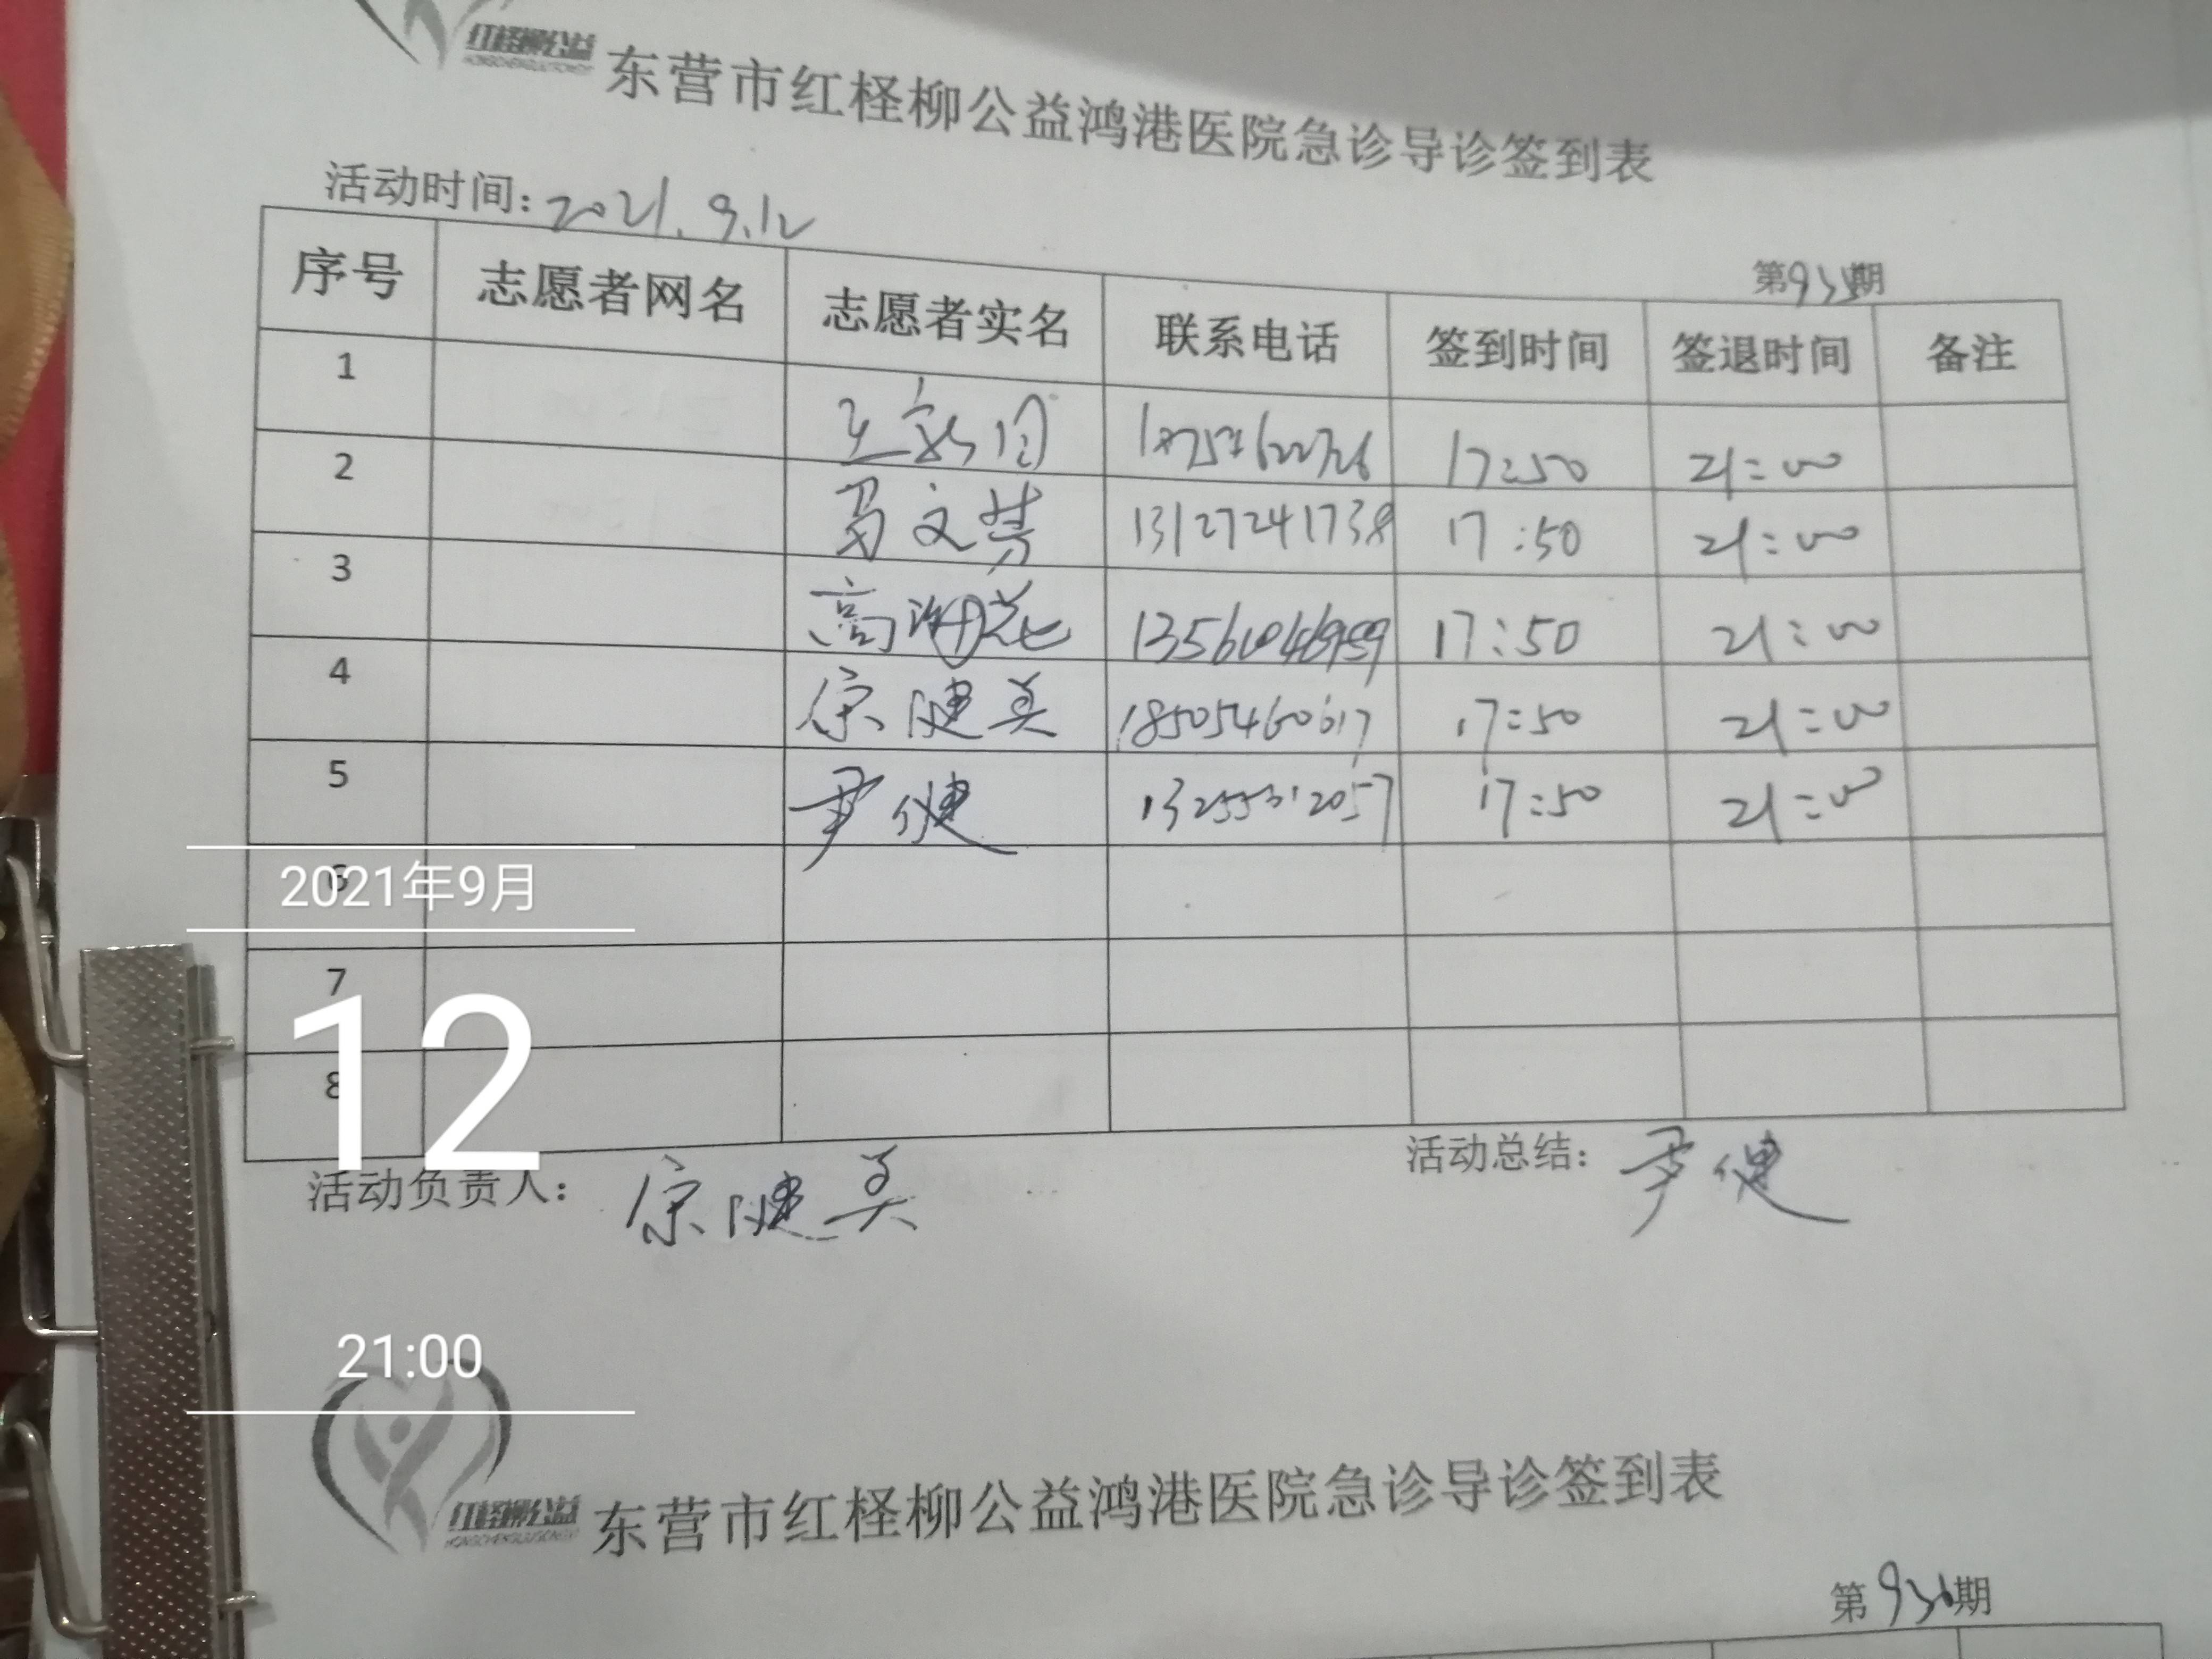 红柽柳公益
东营市红柽柳公益鸿港医院急诊导诊签到表
活动时间: 2021.9.12
第935期
序号 志愿者网名 志愿者实名 联系电话 签到时间 签退时间 备注
1 17:50 21:00
2 马文芳 13127241738 17:50 21:00
3 高 17:50 21:00
4 宗健美 18505460617 17:50 21:00
5 尹健 13255512057 17:50 21:00
6
7
8
活动负责人: 宗健美 活动总结: 尹健
2021年9月
12
21:00
红柽柳公益
东营市红柽柳公益鸿港医院急诊导诊签到表
第936期